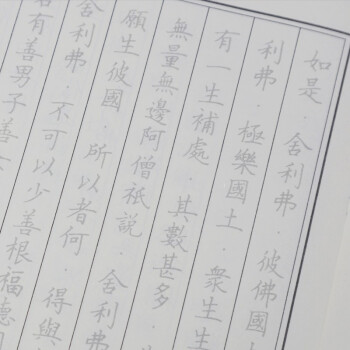 如是．舍利弗．彼佛國土
利弗．極樂國土．眾生生
有一生補處．其數甚多．
無量無邊阿僧祇說．舍利弗
願生彼國．所以者何．得與
舍利弗．不可以少善根福德
若有善男子善